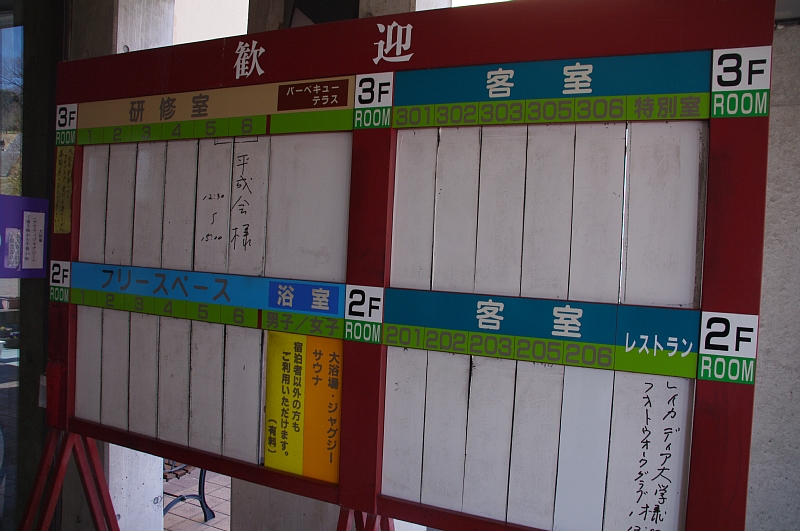 歓迎
3F
ROOM
研修室
バーベキュー
テラス
1 2 3 4 5 6
3F
ROOM
客室
301 302 303 305 306 特別室
3F
ROOM
平成会様
12:30
15:00
2F
ROOM
フリースペース
1 2 3 4 5 6
浴室
男子/女子
2F
ROOM
客室
201 202 203 205 206
レストラン
2F
ROOM
大浴場・ジャグジー
サウナ
宿泊者以外の方も
ご利用いただけます。
(有料)
レイカディア大学様
フォトウオークラブ